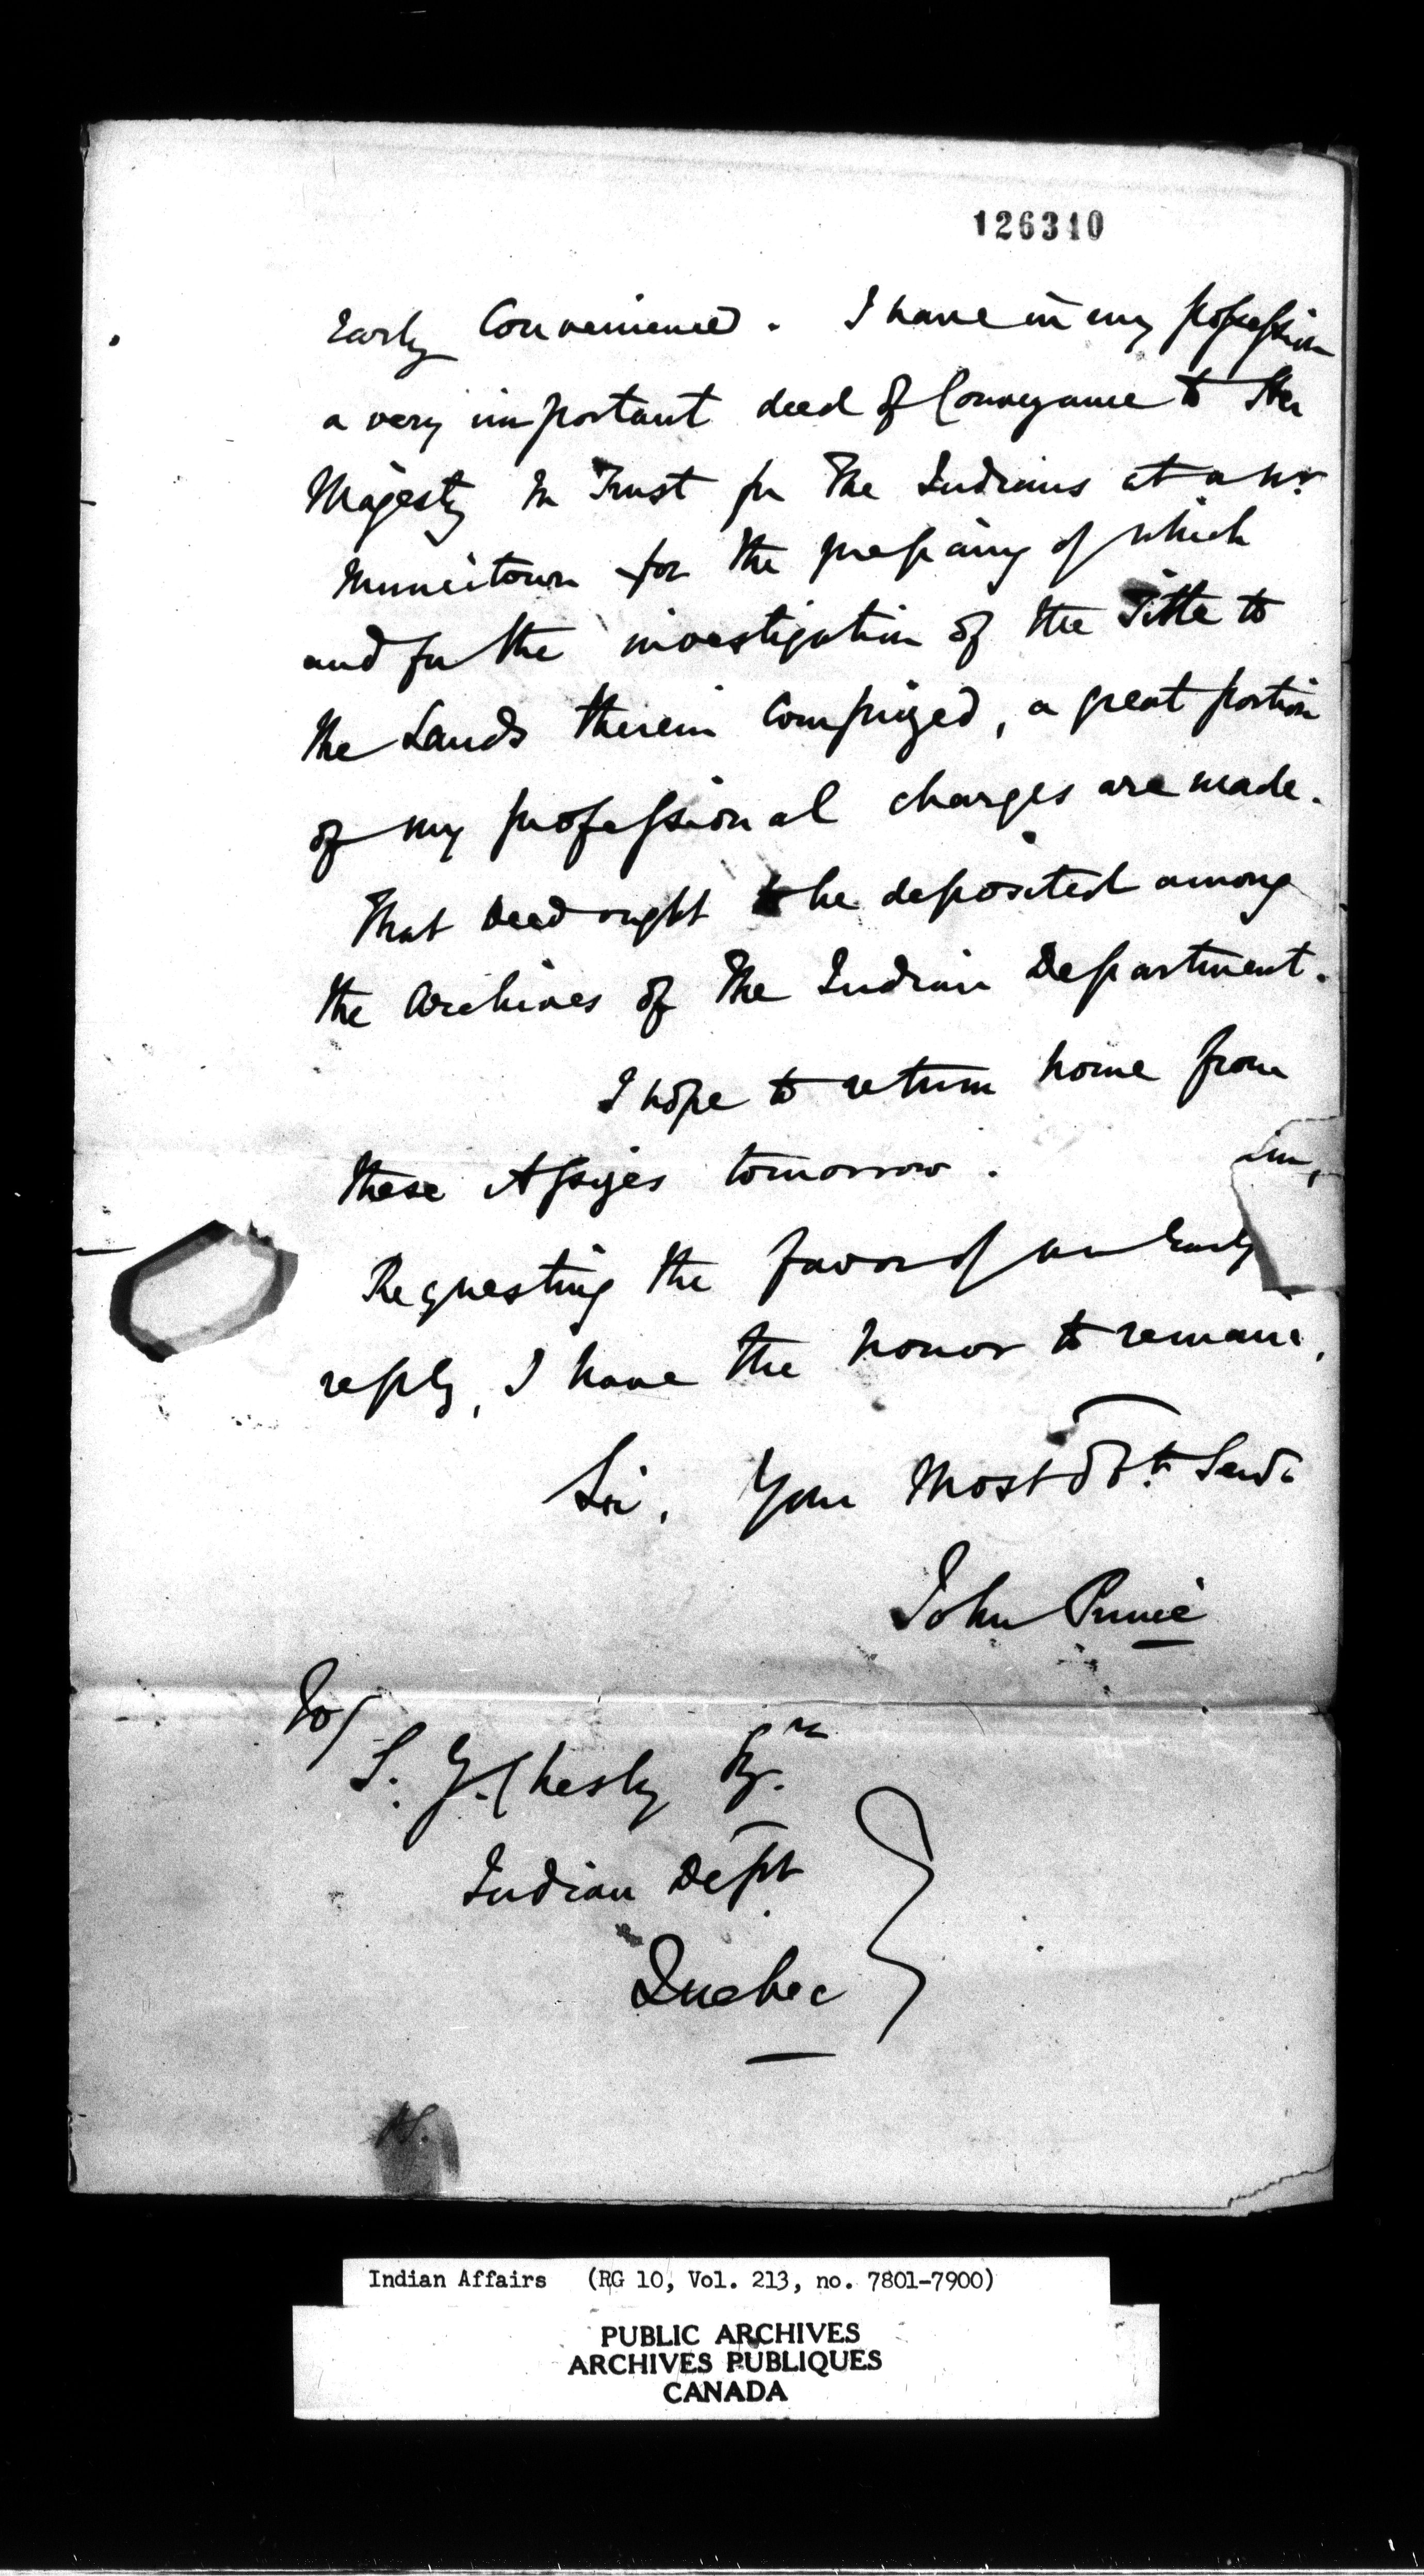 126310
Early Convenience. I have in my possession
a very important deed of Conveyance to Her
Majesty In Trust for The Indians at or nr
Munceitown for the preparing of which
and for the investigation of the Title to
the Lands therein Comprized, a great portion
of my professional charges are made.
That Deed ought to be deposited among
the Archives of The Indian Department.
I hope to return home from
these Assizes tomorrow.
Requesting the favor of an Early
reply, I have the honor to remain,
Sir, Your Most Obt Servt
John
To/
S. Y. Chesly Esqre
Indian Dept
Quebec
Indian Affairs (RG 10, Vol. 213, no. 7801-7900)
PUBLIC ARCHIVES
ARCHIVES PUBLIQUES
CANADA